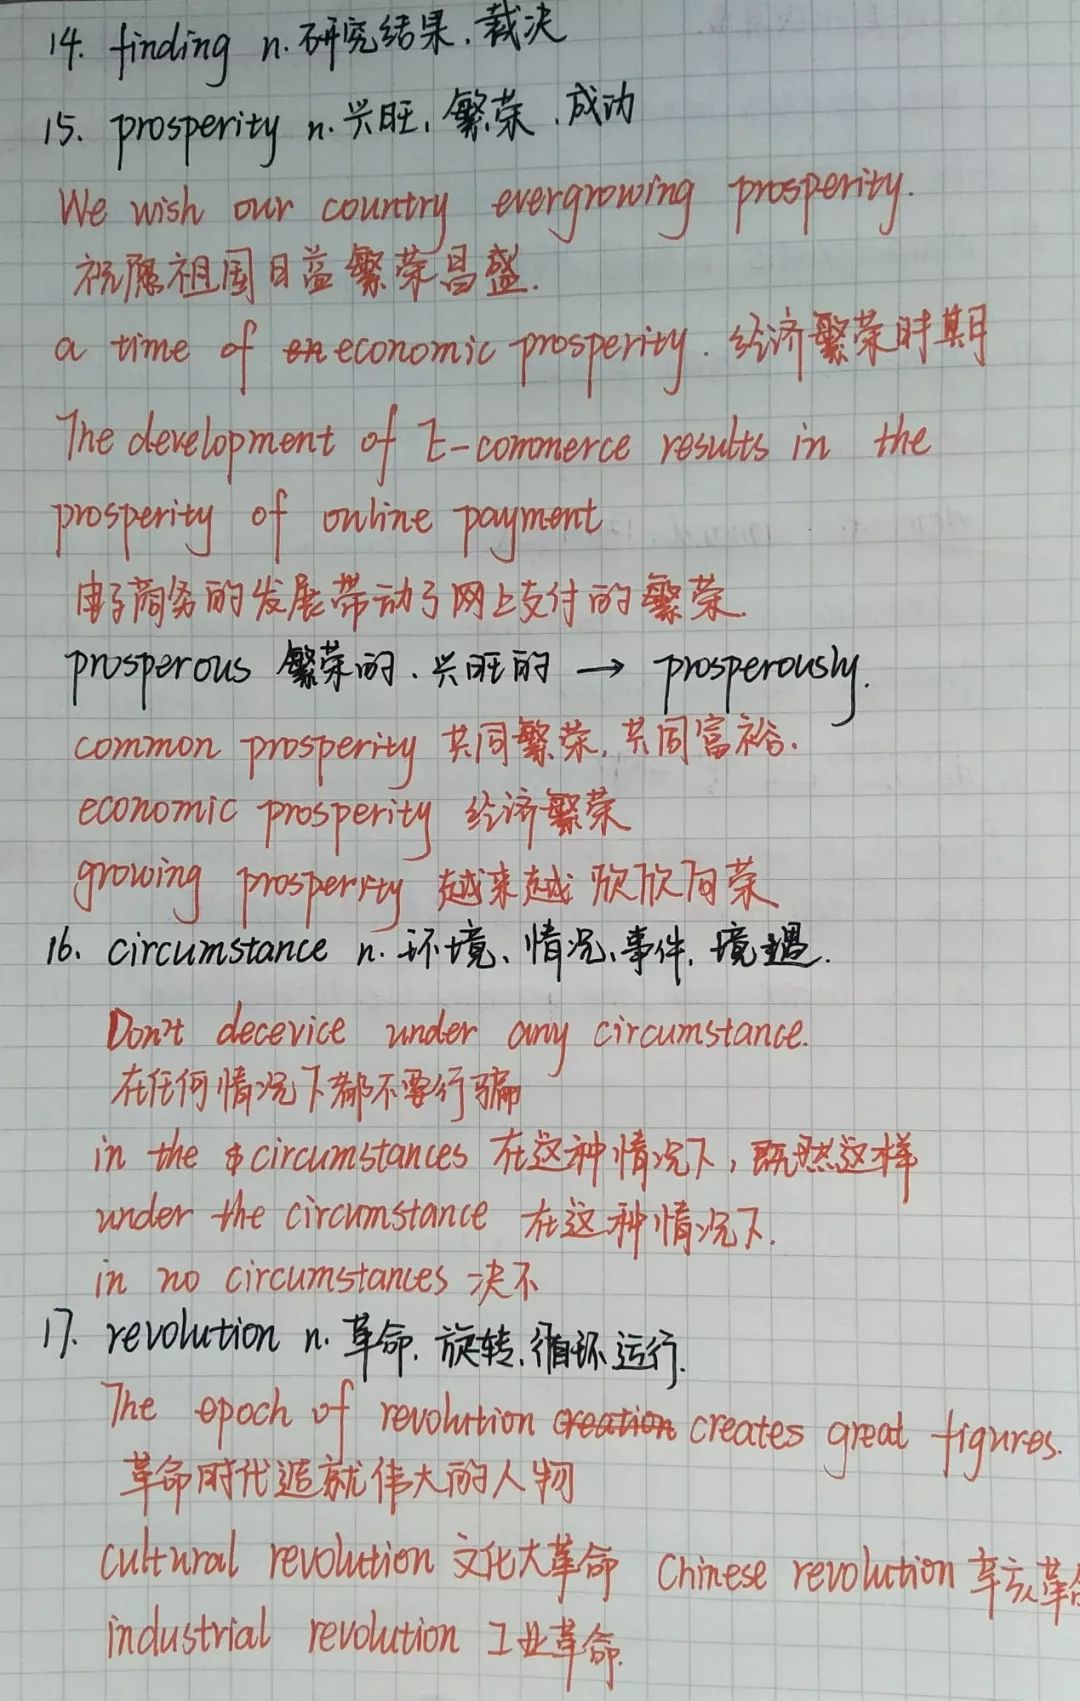 14. finding n. 研究结果. 裁决
15. prosperity n. 兴旺, 繁荣. 成功
We wish our country evergrowing prosperity.
祝愿祖国日益繁荣昌盛.
a time of economic prosperity. 经济繁荣时期
The development of E-commerce results in the
prosperity of online payment
电子商务的发展带动了网上支付的繁荣.
prosperous 繁荣的. 兴旺的 → prosperously.
common prosperity 共同繁荣, 共同富裕.
economic prosperity 经济繁荣
growing prosperity 越来越欣欣向荣
16. circumstance n. 环境、情况、事件, 境遇.
Don't decevice under any circumstance.
在任何情况下都不要行骗
in the circumstances 在这种情况下, 既然这样
under the circumstance 在这种情况下.
in no circumstances 决不
17. revolution n. 革命. 旋转, 循环运行.
The epoch of revolution creation creates great figures.
革命时代造就伟大的人物
cultural revolution 文化大革命 Chinese revolution 辛亥革命
industrial revolution 工业革命.